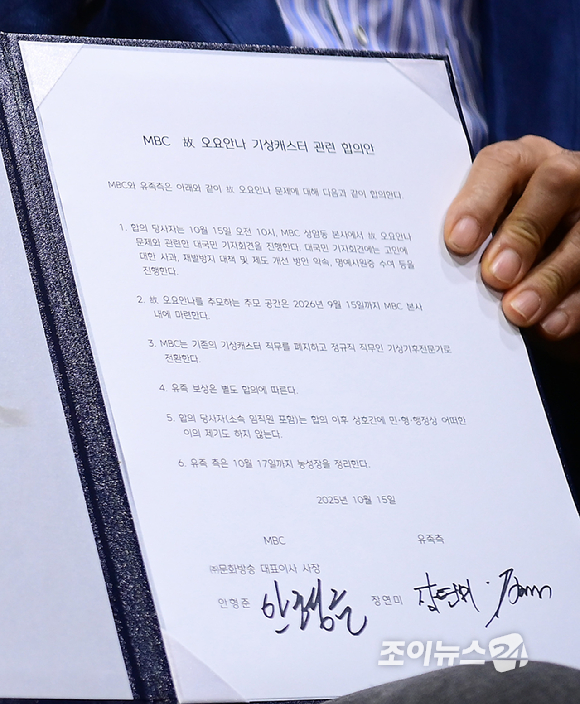 MBC 故 오요안나 기상캐스터 관련 합의안
MBC와 유족측은 아래와 같이 故 오요안나 문제에 대해 다음과 같이 합의한다.
1. 합의 당사자는 10월 15일 오전 10시, MBC 상암동 본사에서 故 오요안나
문제와 관련한 대국민 기자회견을 진행한다. 대국민 기자회견에는 고인에
대한 사과, 재발방지 대책 및 제도 개선 방안 약속, 명예사원증 수여 등을
진행한다.
2. 故 오요안나를 추모하는 추모 공간은 2026년 9월 15일까지 MBC 본사
내에 마련한다.
3. MBC는 기존의 기상캐스터 직무를 폐지하고 정규직 직무인 기상기후전문가로
전환한다.
4. 유족 보상은 별도 합의에 따른다.
5. 합의 당사자(소속 임직원 포함)는 합의 이후 상호간에 민·형·행정상 어떠한
이의 제기도 하지 않는다.
6. 유족 측은 10월 17일까지 농성장을 정리한다.
2025년 10월 15일
MBC 유족측
㈜문화방송 대표이사 사장
안형준 안형준 장연미
조이뉴스24